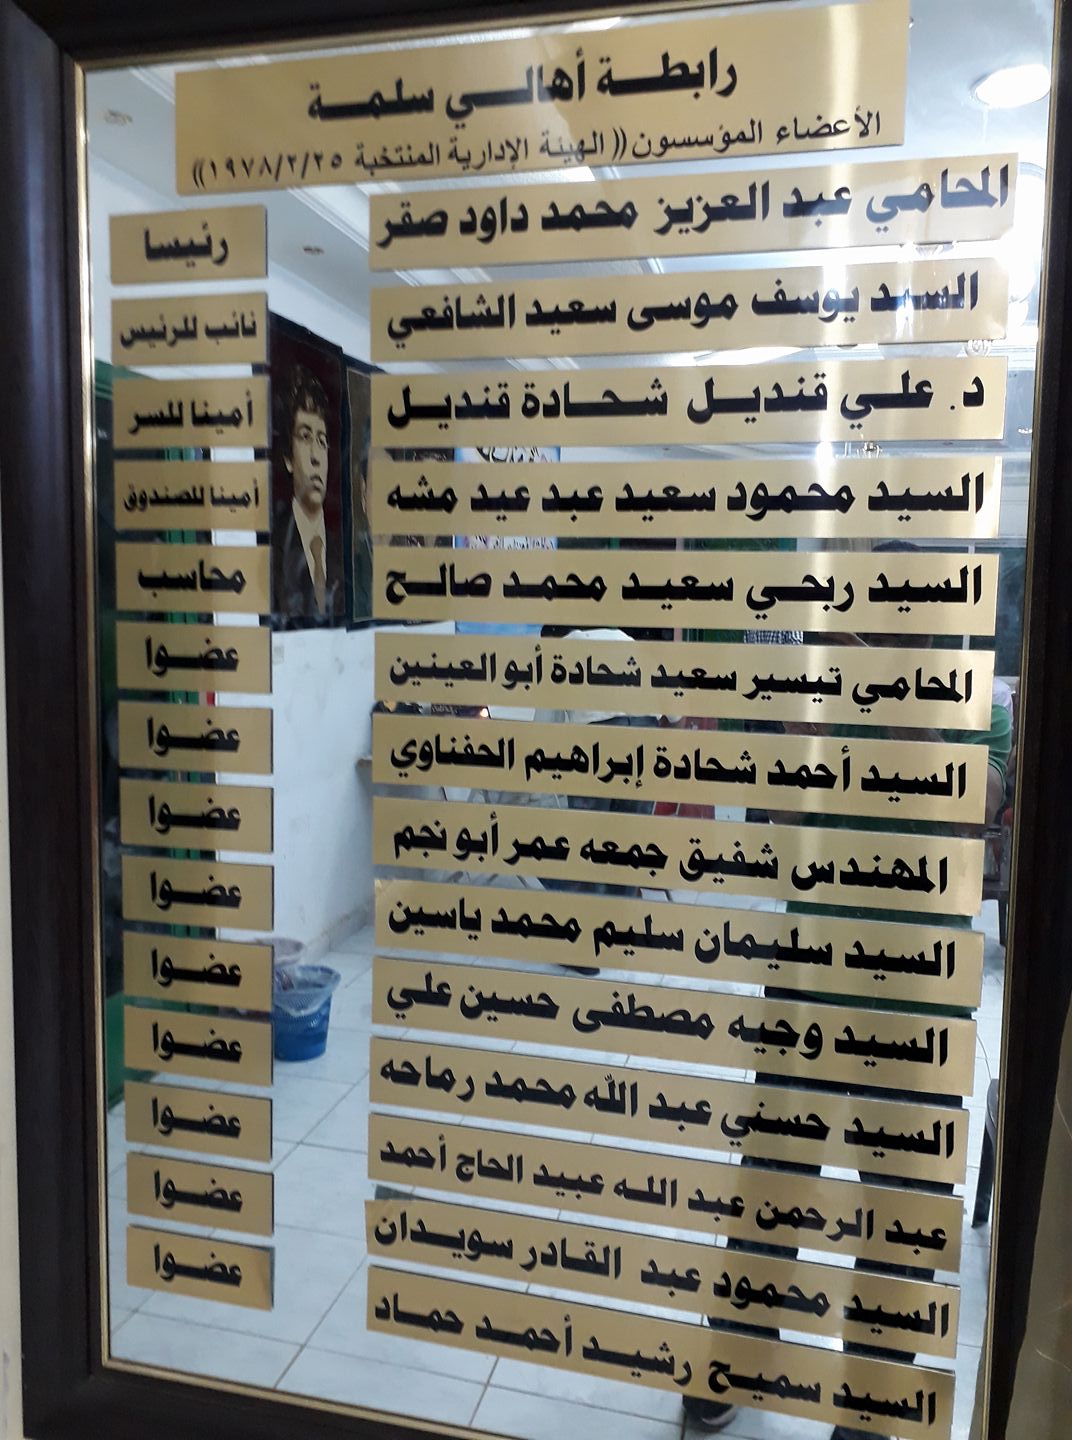 رابطة أهالي سلمة
الأعضاء المؤسسون (( الهيئة الإدارية المنتخبة ١٩٧٨/٢/٢٥))
المحامي عبد العزيز محمد داود صقر رئيسا
السيد يوسف موسى سعيد الشافعي نائب للرئيس
د. علي قنديل شحادة قنديل أمينا للسر
السيد محمود سعيد عبد عيد مشه أمينا للصندوق
السيد ربحي سعيد محمد صالح محاسب
المحامي تيسير سعيد شحادة أبو العينين عضوا
السيد أحمد شحادة إبراهيم الحفناوي عضوا
المهندس شفيق جمعه عمر أبو نجم عضوا
السيد سليمان سليم محمد ياسين عضوا
السيد وجيه مصطفى حسين علي عضوا
السيد حسني عبد الله محمد رماحه عضوا
عبد الرحمن عبد الله عبيد الحاج أحمد عضوا
السيد محمود عبد القادر سويدان عضوا
السيد سميح رشيد أحمد حماد عضوا